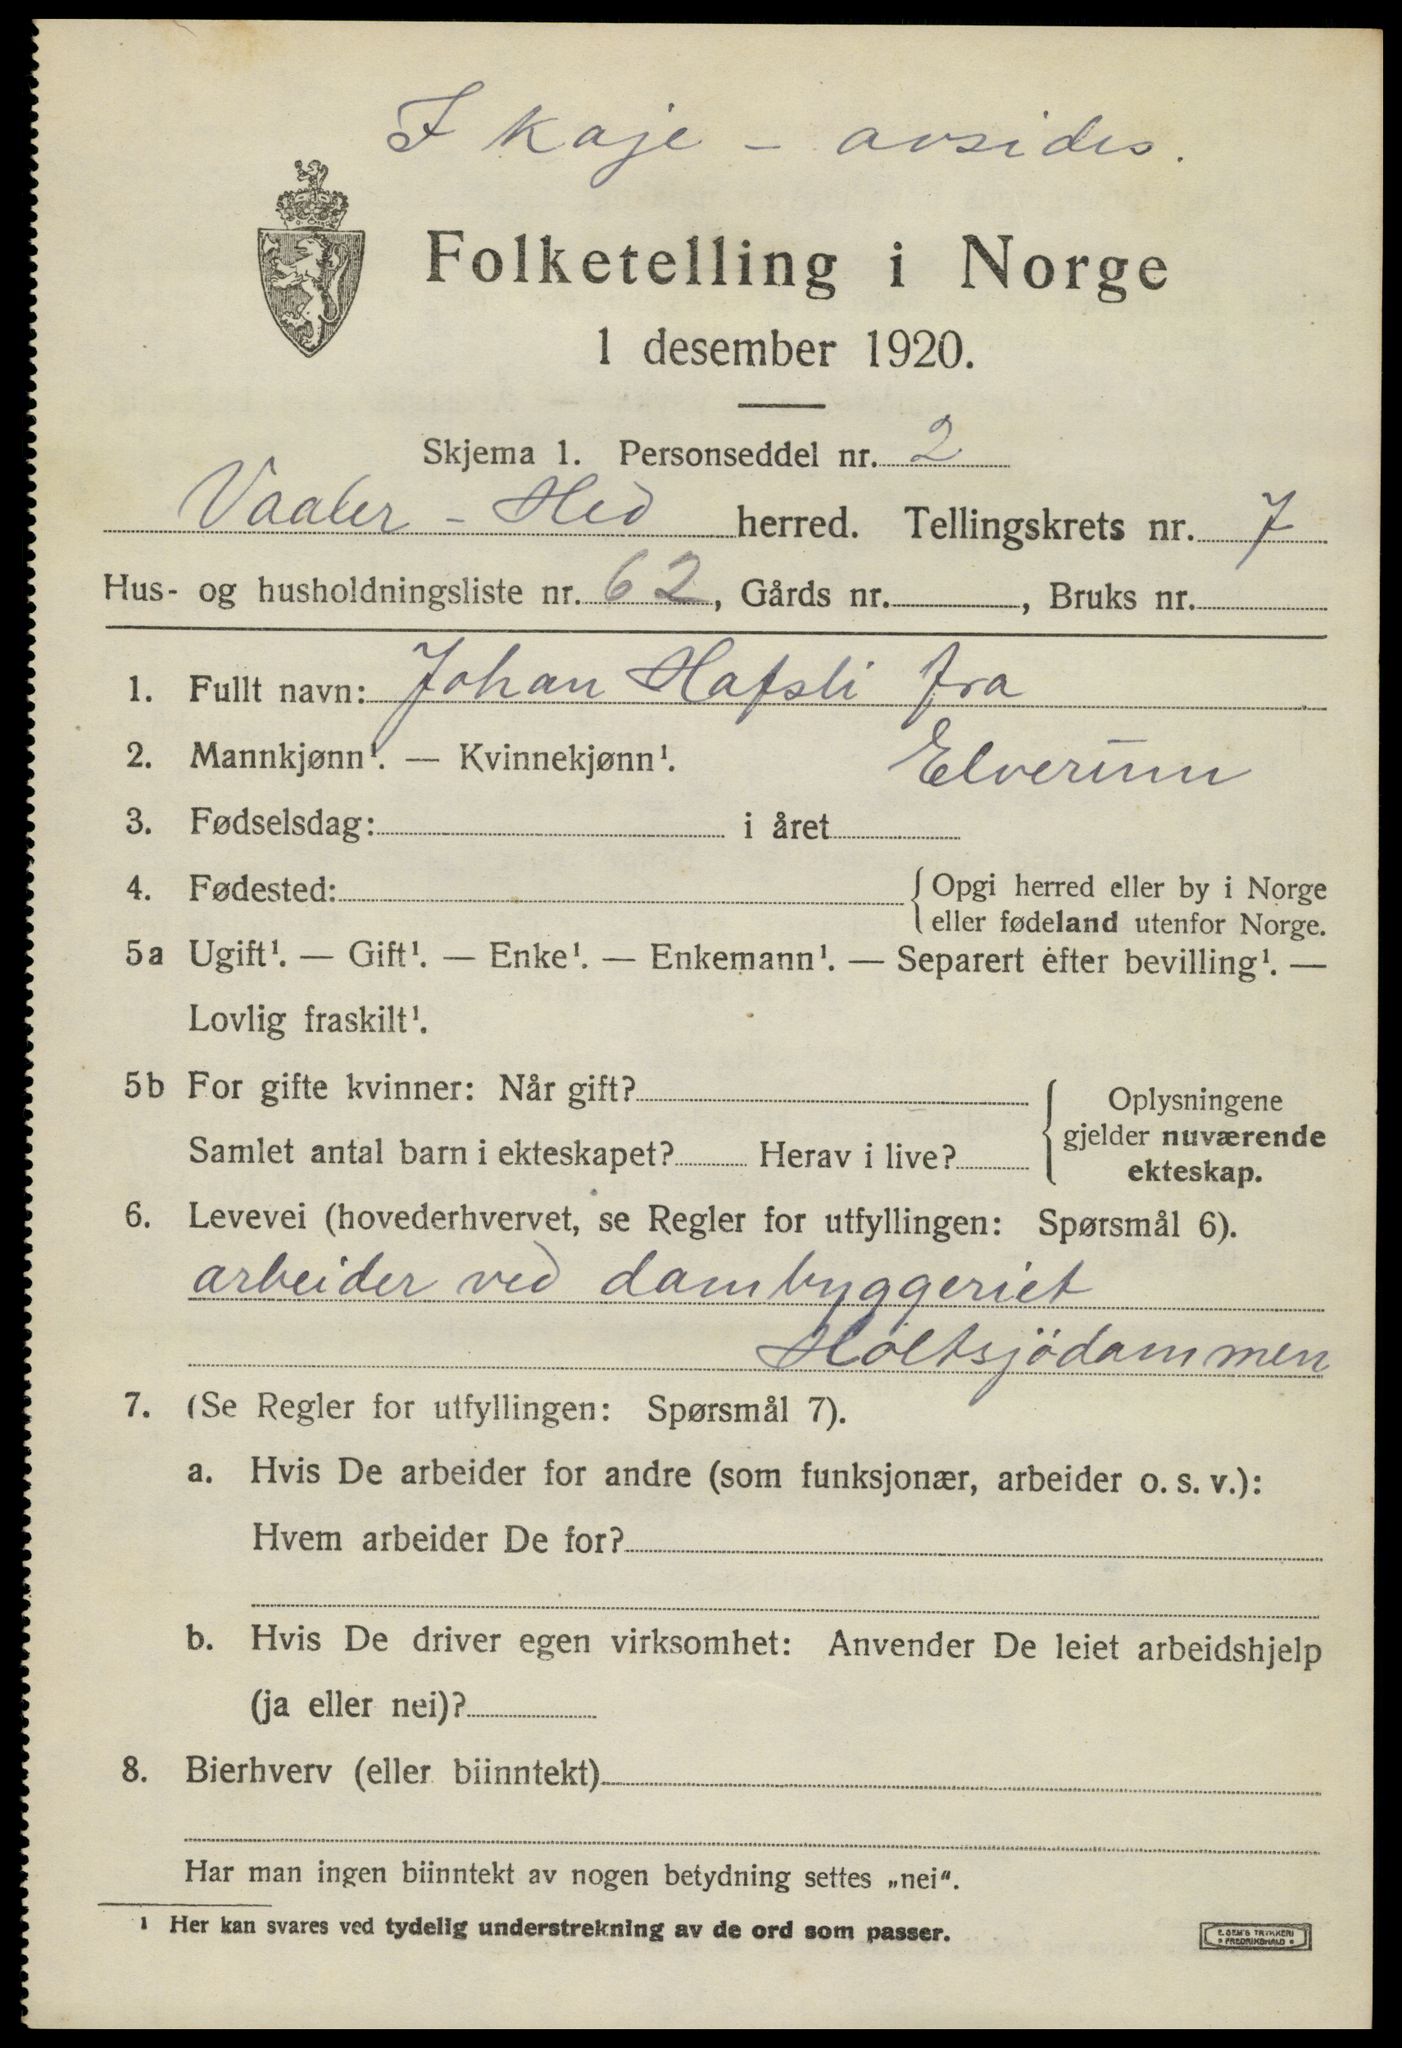 I koje - avsides.
Folketelling i Norge
1 desember 1920.
Skjema 1. Personseddel nr. 2
Vaaler - Hed herred. Tellingskrets nr. 7
Hus- og husholdningsliste nr. 62, Gårds nr. , Bruks nr.
1. Fullt navn: Johan Hafsli fra
Elverum
2. Mannkjønn¹. — Kvinnekjønn¹.
3. Fødselsdag: i året
4. Fødested: { Opgi herred eller by i Norge
eller fødeland utenfor Norge.
5a Ugift¹. — Gift¹. — Enke¹. — Enkemann¹. — Separert efter bevilling¹. —
Lovlig fraskilt¹.
5b For gifte kvinner: Når gift?
Samlet antal barn i ekteskapet? Herav i live?
Oplysningene
gjelder nuværende
ekteskap.
6. Levevei (hovederhvervet, se Regler for utfyllingen: Spørsmål 6).
arbeider ved dambyggeriet
Holtsjödammen
7. (Se Regler for utfyllingen: Spørsmål 7).
a. Hvis De arbeider for andre (som funksjonær, arbeider o. s. v.):
Hvem arbeider De for?
b. Hvis De driver egen virksomhet: Anvender De leiet arbeidshjelp
(ja eller nei)?
8. Bierhverv (eller biinntekt)
Har man ingen biinntekt av nogen betydning settes „nei“.
1 Her kan svares ved tydelig understrekning av de ord som passer.
E. SEM'S TRYKKERI
FREDRIKSHALD